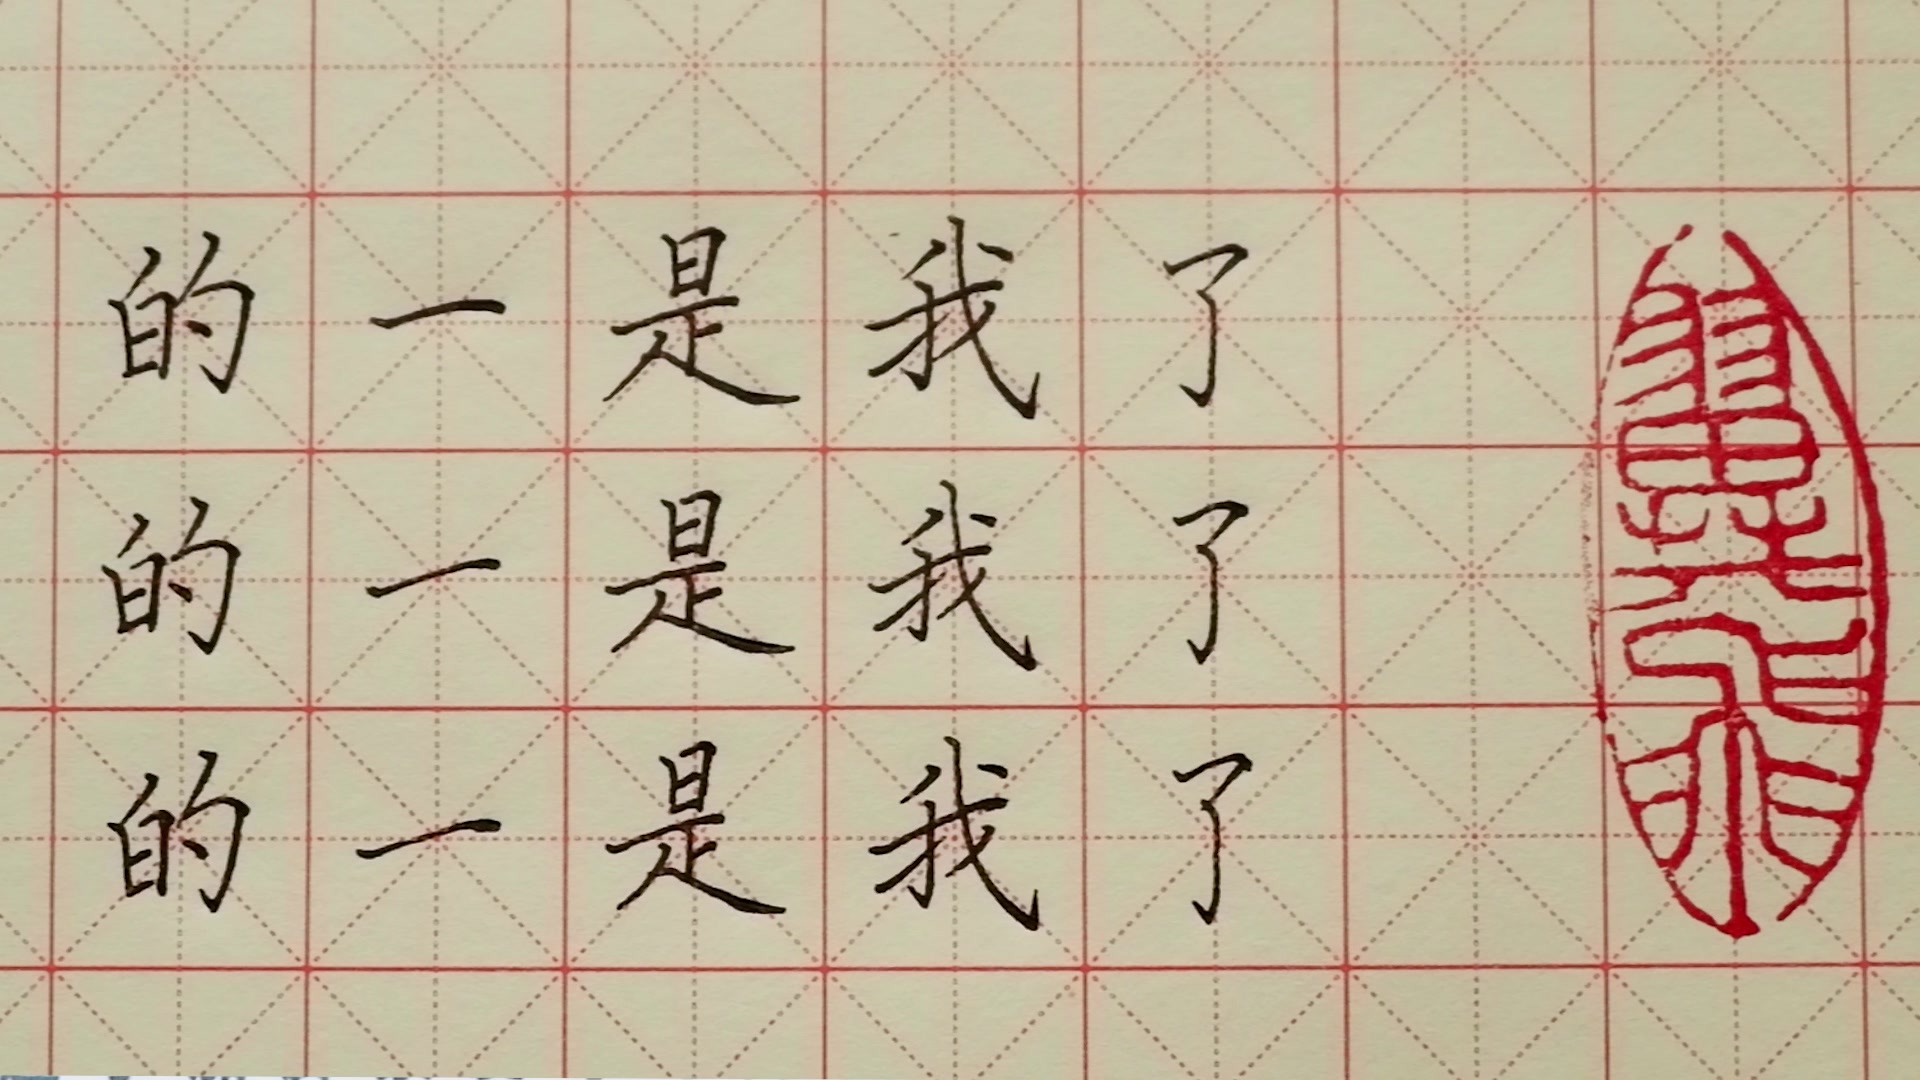 的一是我了
的一是我了
的一是我了